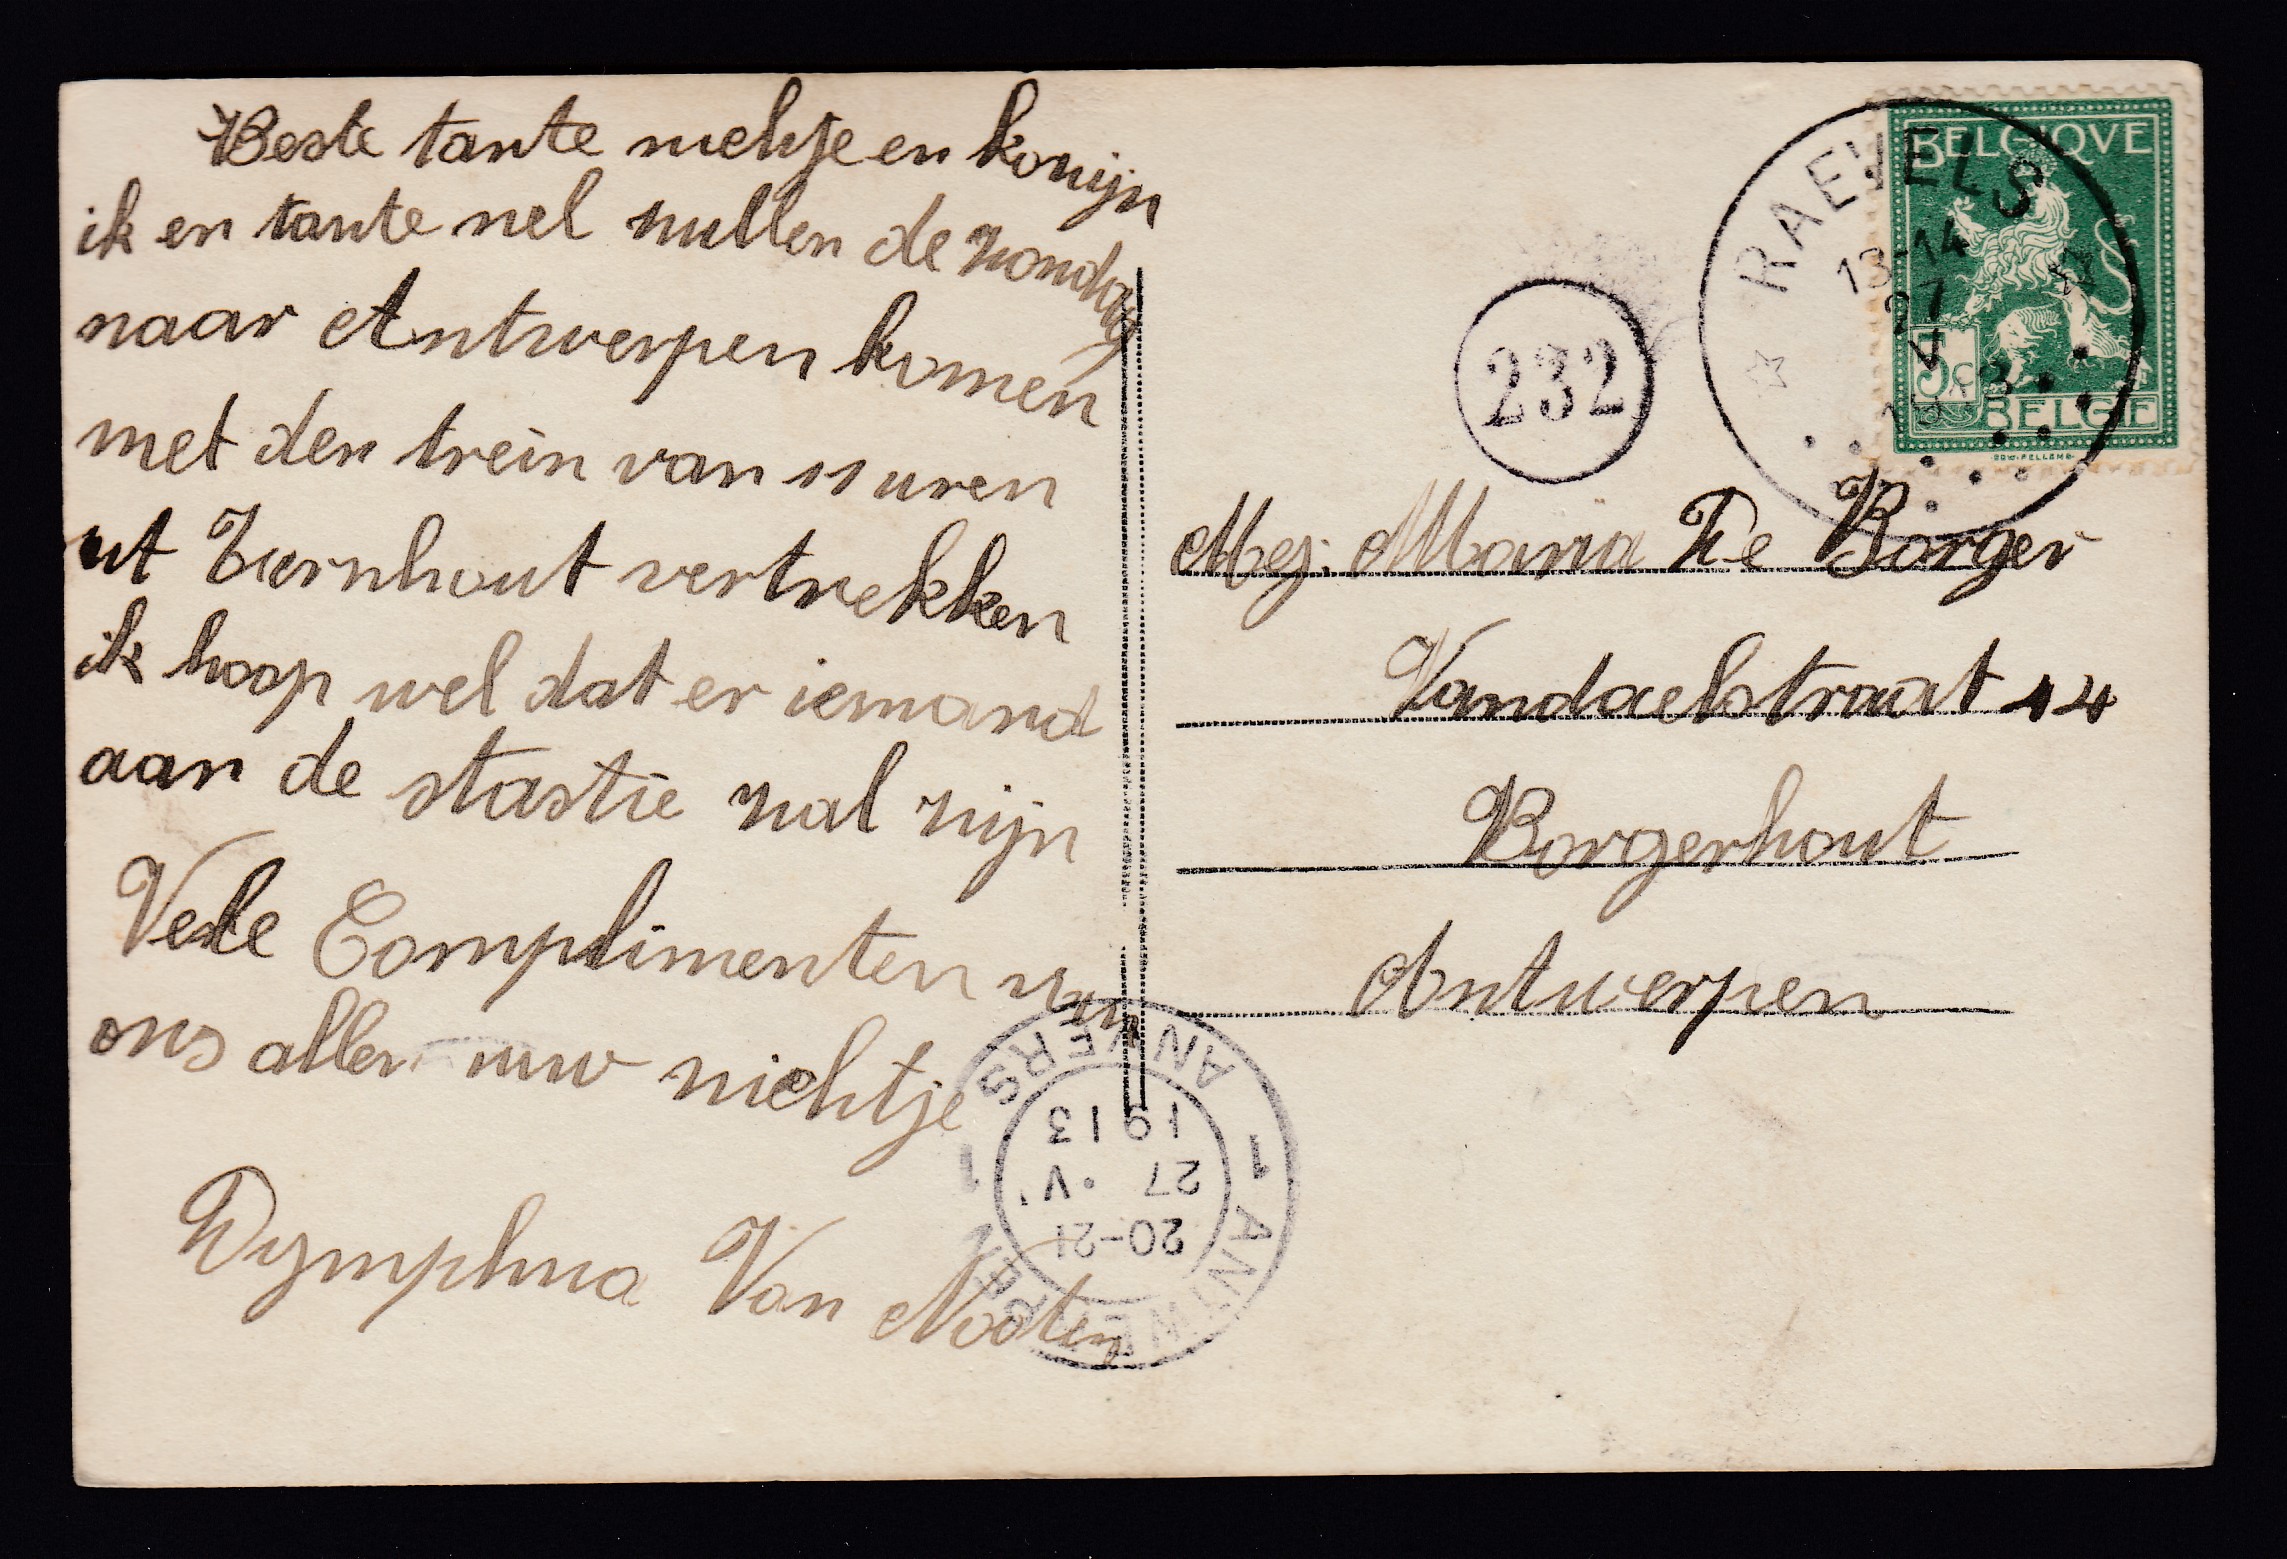 Beste tante nichtje en konijn
ik en tante nel zullen de zondag
naar Antwerpen komen
met den trein van 11 uren
ut Turnhout vertrekken
ik hoop wel dat er iemand
aan de stastie zal zijn
Vele Complimenten van
ons allen uw nichtje
Dymphna Van Nooten
BELGIQVE
5c
BELGIE
RAEVELS
13-14
27
V
13
232
Mej. Maria De Borger
Vandaelstraat 14
Borgerhout
Antwerpen
1 ANTWERPEN 1 ANVERS
20-21
27 · V
1913